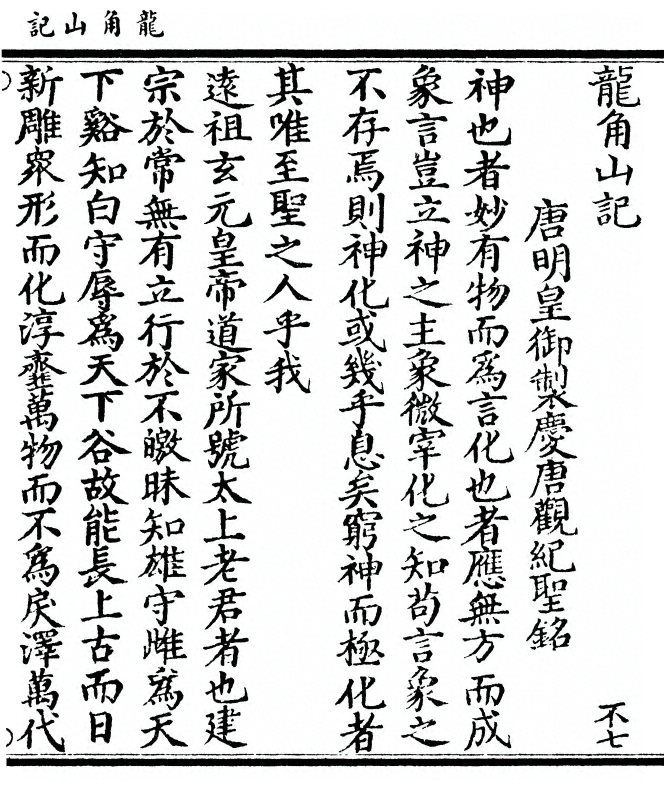 龍角山記
龍角山記
不七
唐明皇御製慶唐觀紀聖銘
神也者妙有物而爲言化也者應無方而成
象言豈立神之主象微宰化之知苟言象之
不存焉則神化或幾乎息矣窮神而極化者
其唯至聖之人乎我
遠祖玄元皇帝道家所號太上老君者也建
宗於常無有立行於不皦昧知雄守雌爲天
下谿知白守辱爲天下谷故能長上古而日
新雕衆形而化淳韲萬物而不爲戾澤萬代